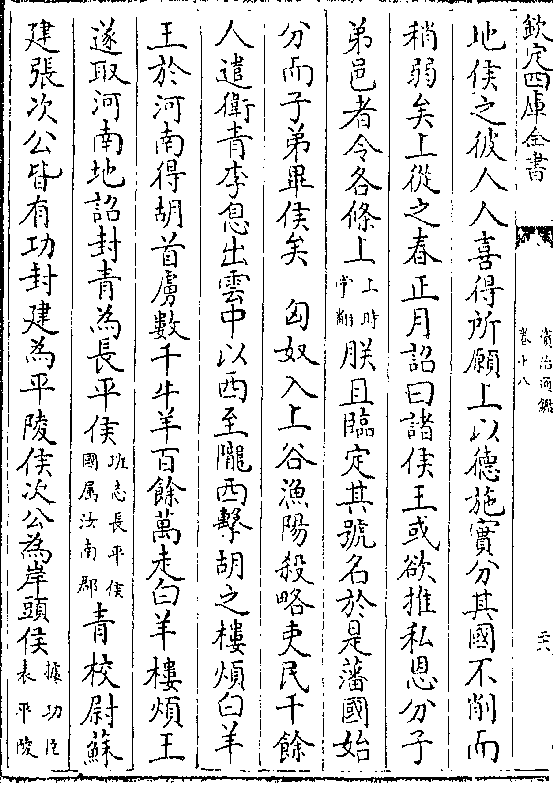 欽定四庫全書
資治通鑑
卷十八
地侯之彼人人喜得所願上以德施實分其國不削而
稍弱矣上從之春正月詔曰諸侯王或欲推私恩分子
弟邑者令各條上上時掌翻朕且臨定其號名於是藩國始
分而子弟畢侯矣　匈奴入上谷漁陽殺略吏民千餘
人遣衛青李息出雲中以西至隴西擊胡之樓煩白羊
王於河南得胡首虜數千牛羊百餘萬走白羊樓煩王
遂取河南地詔封青為長平侯班志長平侯國屬汝南郡青校尉蘇
建張次公皆有功封建為平陵侯次公為岸頭侯據功臣表平陵